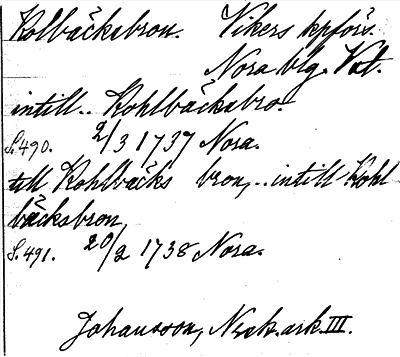 Kolbäcksbron. Vikers kpförs.
Nora blg. Vstl.
intill.. Kohlbäcksbro.
S. 490. 2/3 1737 Nora.
till Kohlbäcks bron,.. intill Kohl
bäcksbron,
S. 491. 20/2 1738 Nora.
Johansson, Noraek. ark. III.